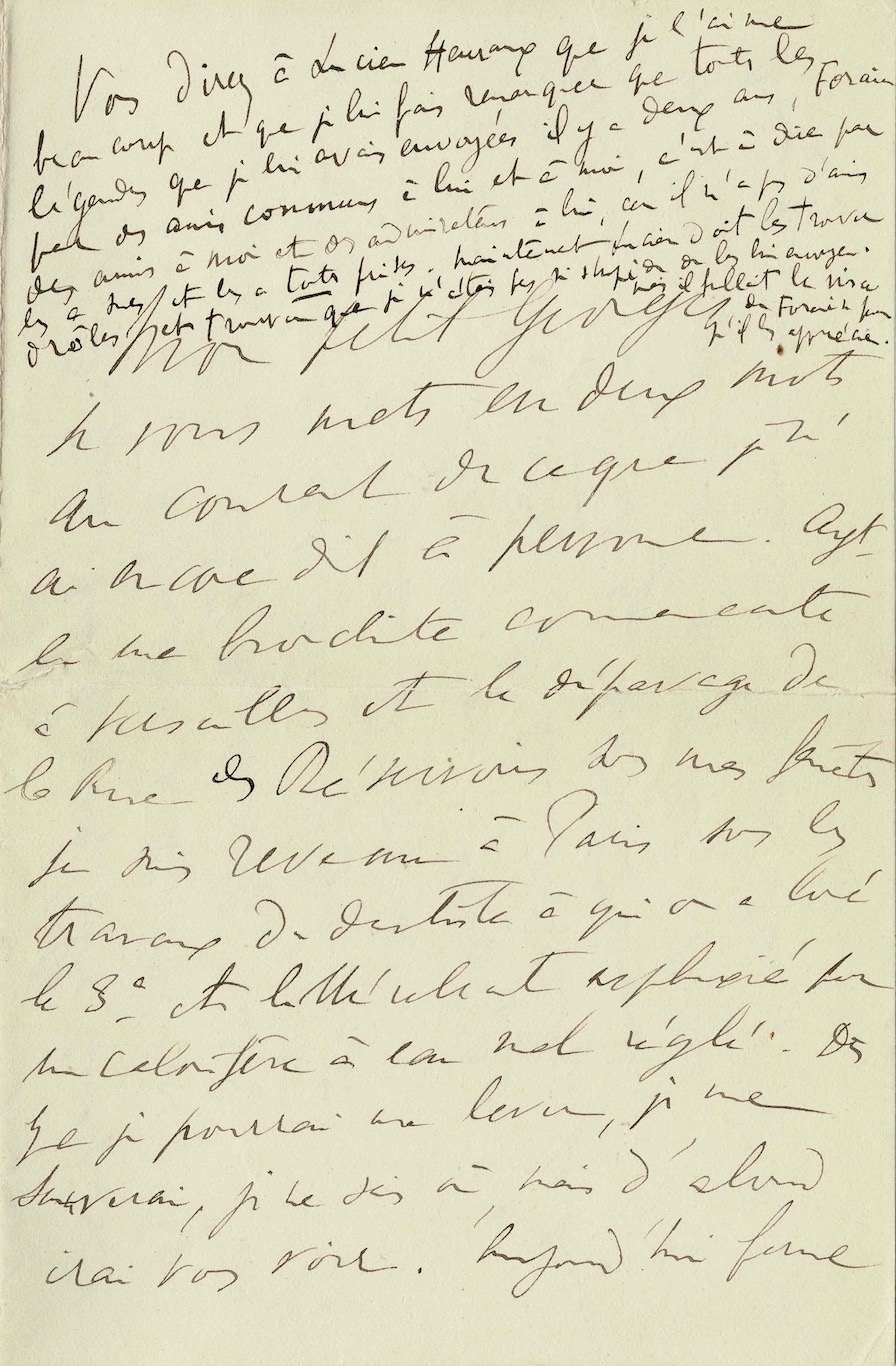 Vous direz à Lucien Henraux que je l'aime
beaucoup et que je lui fais remarquer que toutes les
légendes que je lui avais envoyées il y a deux ans, Forain
par des amis communs à lui et à moi, c'est à dire par
des amis à moi et des admirateurs à lui, car il n'a pas d'amis
les a et les a toutes prises. maintenant Lucien doit les trouver
drôles et trouver que je n'étais pas si stupide de les lui envoyer.
mais il fallait le visa
de Forain pour
qu'il les apprécie.
Mon petit Georges
Je vous mets en deux mots
au courant de ce que je n'
ai encore dit à personne. Ayt
eu une bronchite commencante
à Versailles et le dépavage de
la Rue des Réservoirs sous mes fenêtres
je suis revenu à Paris sous les
travaux du dentiste à qui on a loué
le 3e et littéralement asphyxié par
un calorifère à eau mal réglé. Dès
que je pourrai me lever, je me
sauverai, je ne sais où, mais d'abord
irai vous voir. Aujourd'hui forme